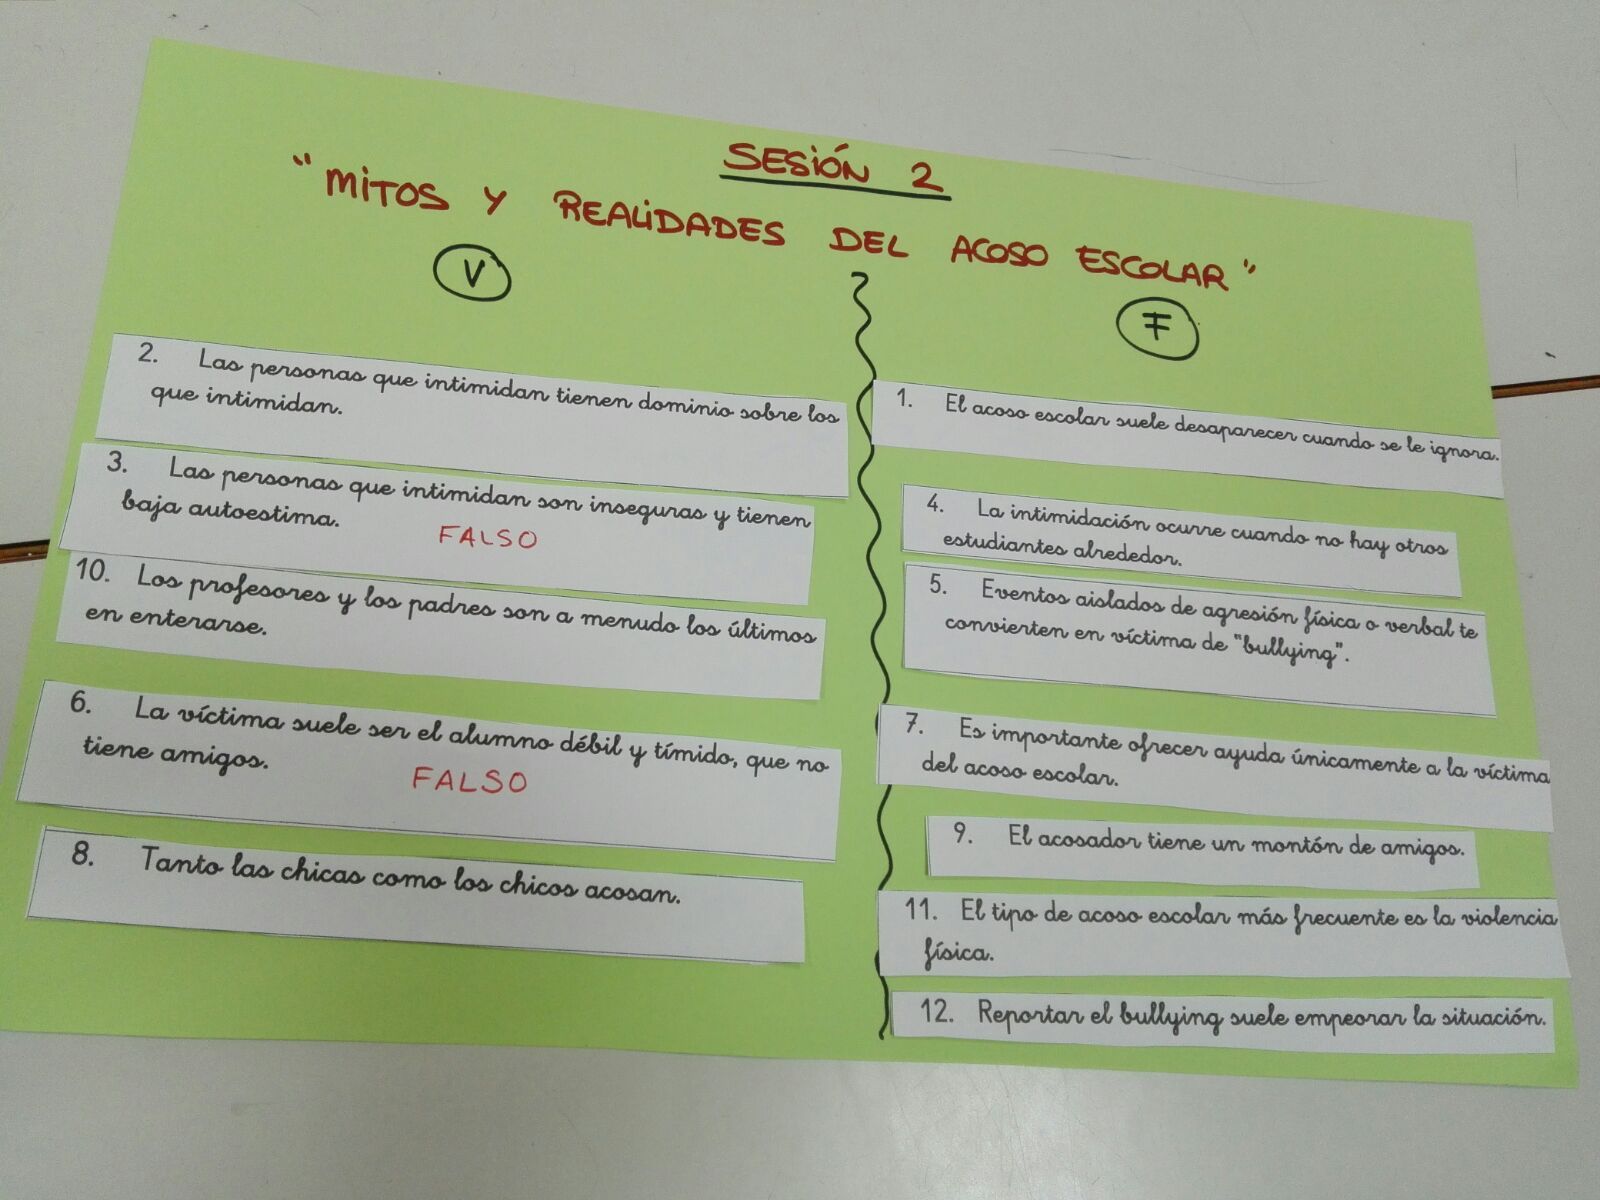 SESIÓN 2
"MITOS Y REALIDADES DEL ACOSO ESCOLAR"
V
2. Las personas que intimidan tienen dominio sobre los
que intimidan.
3. Las personas que intimidan son inseguras y tienen
baja autoestima.
FALSO
10. Los profesores y los padres son a menudo los últimos
en enterarse.
6. La víctima suele ser el alumno débil y tímido, que no
tiene amigos.
FALSO
8. Tanto las chicas como los chicos acosan.
F
1. El acoso escolar suele desaparecer cuando se le ignora.
4. La intimidación ocurre cuando no hay otros
estudiantes alrededor.
5. Eventos aislados de agresión física o verbal te
convierten en víctima de "bullying".
7. Es importante ofrecer ayuda únicamente a la víctima
del acoso escolar.
9. El acosador tiene un montón de amigos.
11. El tipo de acoso escolar más frecuente es la violencia
física.
12. Reportar el bullying suele empeorar la situación.